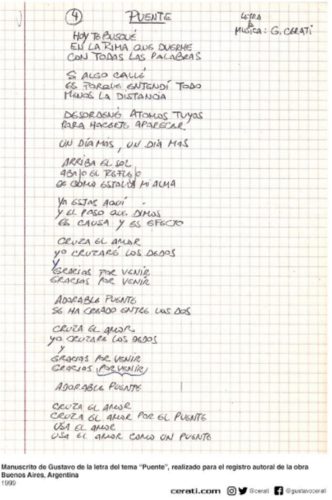 4 PUENTE LETRA
& MUSICA: G. CERATI
HOY TE BUSQUÉ
EN LA RIMA QUE DUERME
CON TODAS LAS PALABRAS
SI ALGO CALLÉ
ES PORQUE ENTENDÍ TODO
MENOS LA DISTANCIA
DESORDENÉ ATOMOS TUYOS
PARA HACERTE APARECER
UN DÍA MAS, UN DÍA MAS
ARRIBA EL SOL
ABAJO EL REFLEJO
DE COMO ESTALLA MI ALMA
YA ESTAS AQUÍ
Y EL PASO QUE DIMOS
ES CAUSA Y ES EFECTO
CRUZA EL AMOR
YO CRUZARÉ LOS DEDOS
Y
GRACIAS POR VENIR
GRACIAS POR VENIR
ADORABLE PUENTE
SE HA CREADO ENTRE LOS DOS
CRUZA EL AMOR
YO CRUZARÉ LOS DEDOS
Y
GRACIAS POR VENIR
GRACIAS POR VENIR
ADORABLE PUENTE
CRUZA EL AMOR
CRUZA EL AMOR POR EL PUENTE
USA EL AMOR
USA EL AMOR COMO UN PUENTE
Manuscrito de Gustavo de la letra del tema "Puente", realizado para el registro autoral de la obra
Buenos Aires, Argentina
1999
cerati.com @cerati @gustavocerati